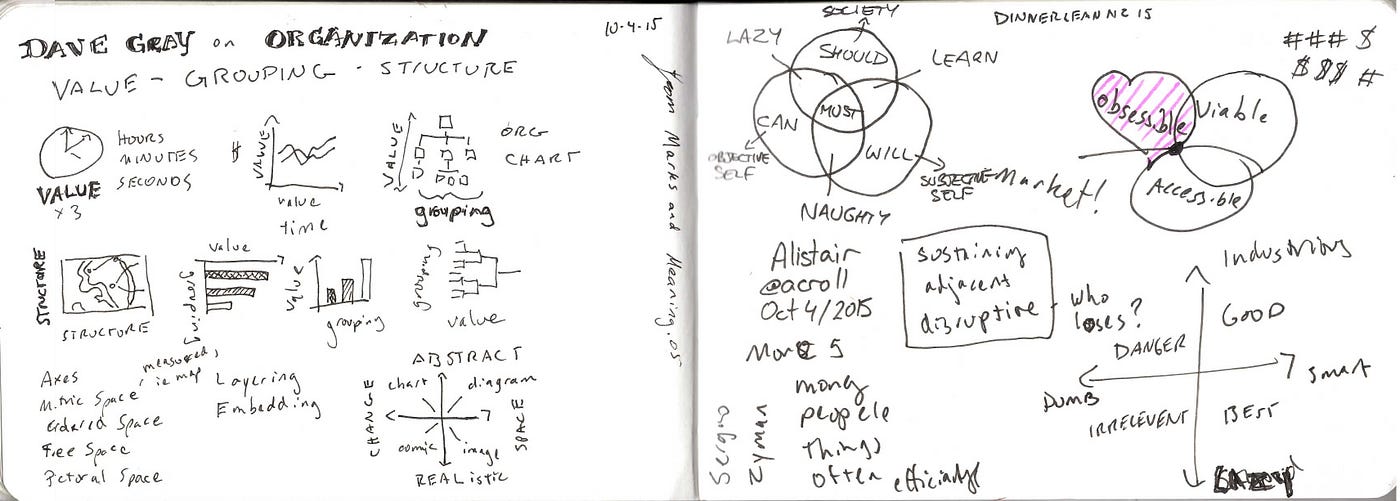 DAVE GRAY on ORGANIZATION
VALUE - GROUPING - STRUCTURE
10-4-15
from Marks and Meaning.05
VALUE
x 3
HOURS
MINUTES
SECONDS
#
VALUE
value
time
VALUE
grouping
ORG
CHART
STRUCTURE
STRUCTURE
value
grouping
value
grouping
grouping
value
Axes
Metric Space
Ordered Space
Free Space
Pictoral Space
measured,
ie map
Layering
Embedding
ABSTRACT
CHANGE
chart
diagram
SPACE
comic
image
REAListic
SOCIETY
LAZY
SHOULD
LEARN
CAN
MUST
WILL
OBJECTIVE
SELF
SUBJECTIVE
SELF
NAUGHTY
DINNERLEANNZ 15
# # # $
$ $ $ #
Obsessible
Viable
Accessible
Market!
Alistair
@acroll
Oct 4/2015
sustaining
adjacent
disruptive
who
loses?
More 5
Sergio
Zyman
money
people
things
often
efficiently
Industrious
GOOD
DANGER
Smart
DUMB
IRRELEVENT
BEST